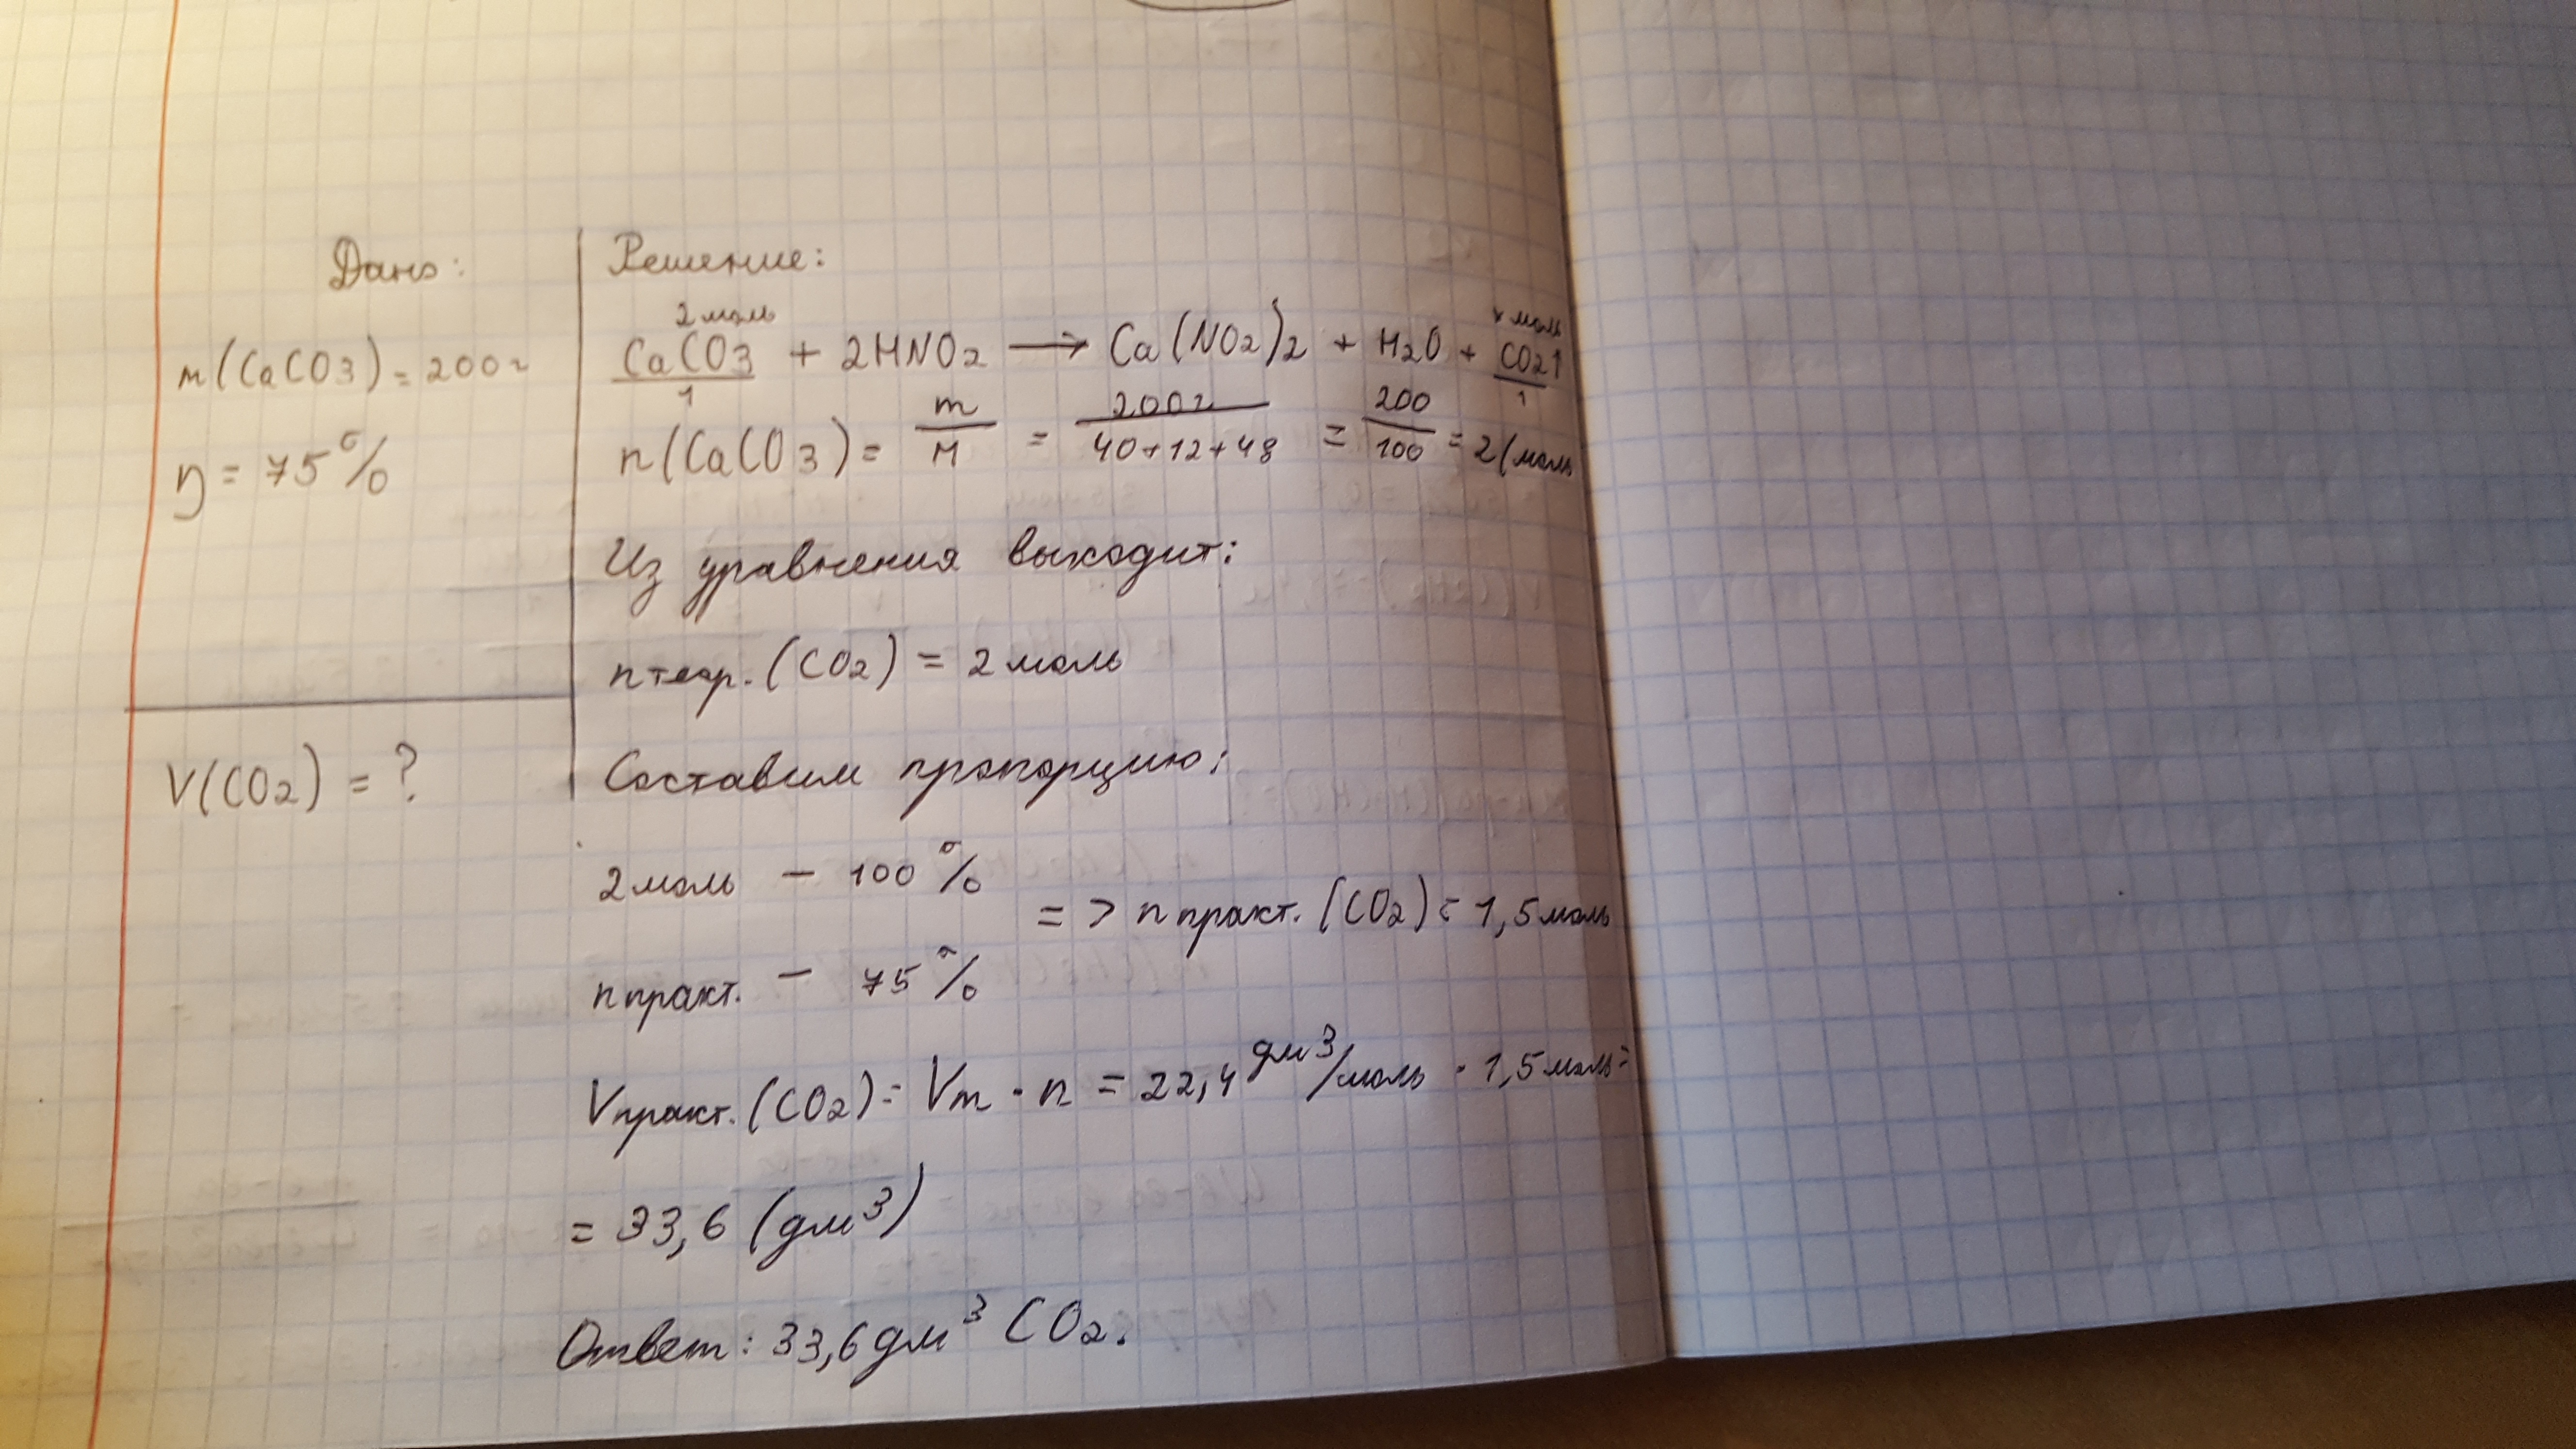 Дано:
m(CaCO3) = 200г
η = 75%
V(CO2) = ?
Решение:
2 моль x моль
CaCO3 + 2HNO2 → Ca(NO2)2 + H2O + CO2↑
1 1
n(CaCO3) = m/M = 200г/40+12+48 = 200/100 = 2(моль
Из уравнения выходит:
n теор. (CO2) = 2 моль
Составим пропорцию:
2 моль – 100%
=> n практ. (CO2) = 1,5 моль
n практ. – 75%
V практ. (CO2) = Vm · n = 22,4 дм³/моль · 1,5 моль =
= 33,6 (дм³)
Ответ: 33,6 дм³ CO2.